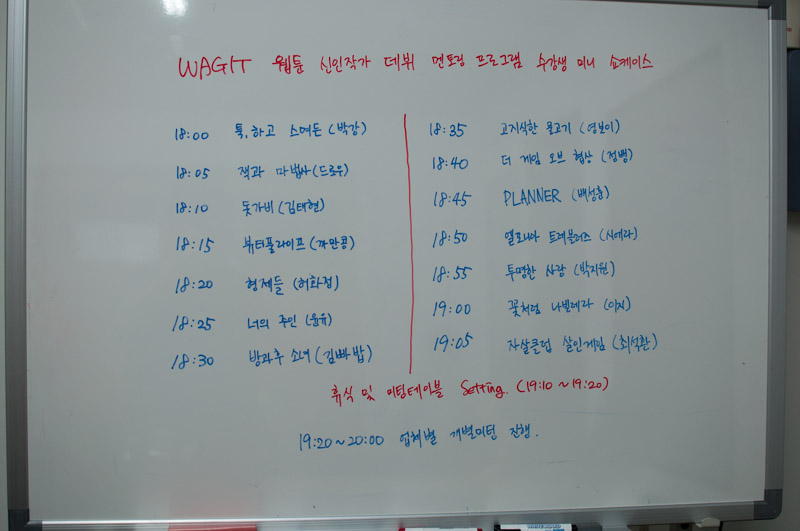 WAGIT 웹툰 신인작가 데뷔 멘토링 프로그램 수강생 미니 쇼케이스
18:00 톡, 하고 스며든 (박강)
18:05 잭과 마법사 (드로우)
18:10 돗가비 (김태현)
18:15 뷰티풀라이프 (까만콩)
18:20 형제들 (허화점)
18:25 너의 주인 (윤유)
18:30 방과후 소녀 (김빠밥)
18:35 고지식한 물고기 (연보이)
18:40 더 게임 오브 협상 (정뱅)
18:45 PLANNER (배성훈)
18:50 엘로니아 트레블러즈 (시에라)
18:55 투명한 사랑 (박지원)
19:00 꽃처럼 나빌레라 (이지)
19:05 자살클럽 살인게임 (최석환)
휴식 및 미팅테이블 Setting. (19:10 ~ 19:20)
19:20 ~ 20:00 업체별 개별미팅 진행.